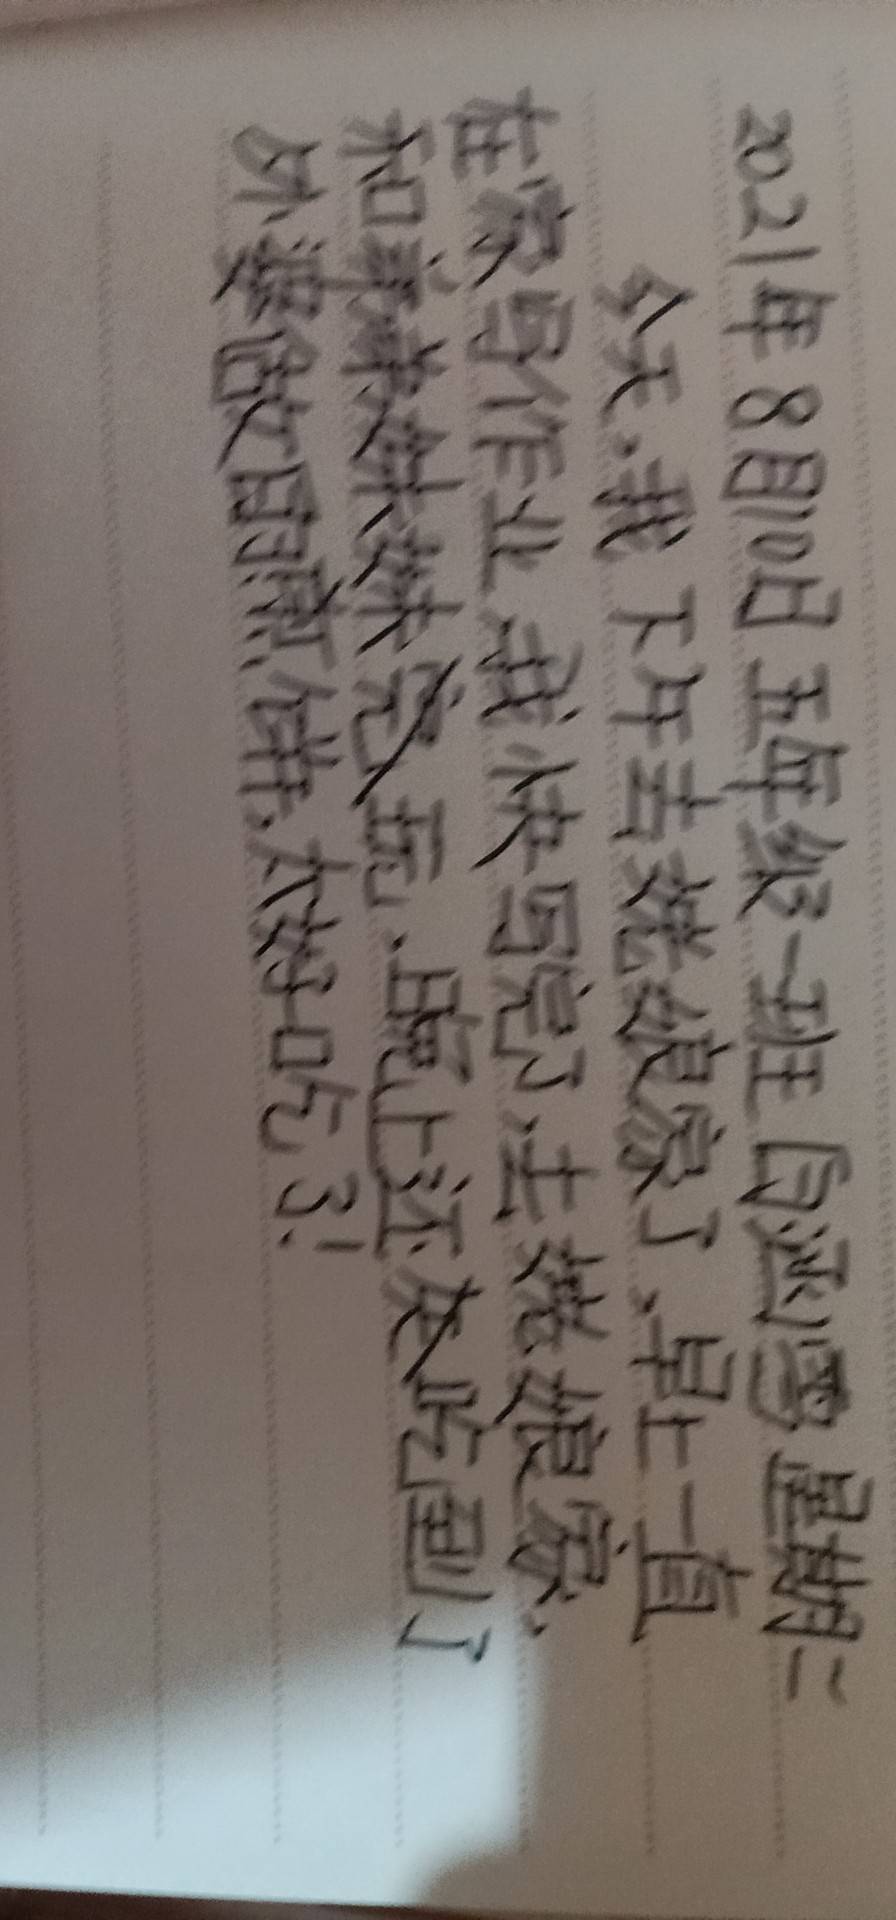 2021年8月10日 五年级一班 白涵雪 星期二
今天,我下午去婼娘家了,早上一直
在家写作业,我快写完了,去婼娘家,
和弟弟妹妹完玩,晚上还友吃到了
外婆做的煎饼,太好吃了!